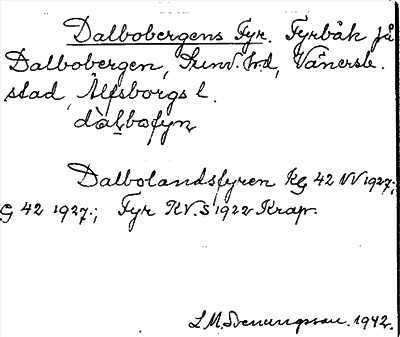 Dalbobergens Fyr. Fyrbåk på
Dalbobergen, Sund. hd, Vänersb.
stad, Älfsborgs l.
dàlbofyṇ
Dalbolandsfyren KG 42 NV 1927;
G 42 1927; Fyr KV.S 1922 Krap.
L.M. Svenungsson. 1942.